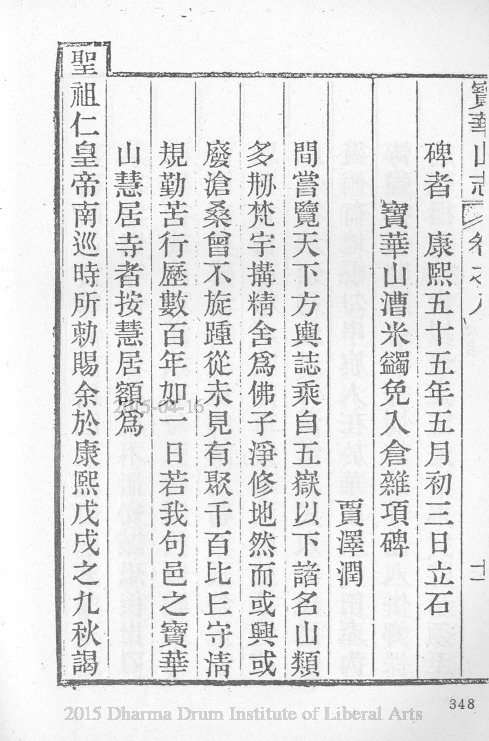 寶華山志 卷之八 十一
碑者 康熙五十五年五月初三日立石
寶華山漕米蠲免入倉雜項碑
賈澤潤
間嘗覽天下方輿誌乘自五嶽以下諸名山類
多刱梵宇搆精舍爲佛子淨修地然而或興或
廢滄桑曾不旋踵從未見有聚千百比丘守淸
規勤苦行歷數百年如一日若我句邑之寶華
山慧居寺者按慧居額爲
聖祖仁皇帝南巡時所勅賜余於康熙戊戌之九秋謁
348
2015-04-16
2015 Dharma Drum Institute of Liberal Arts